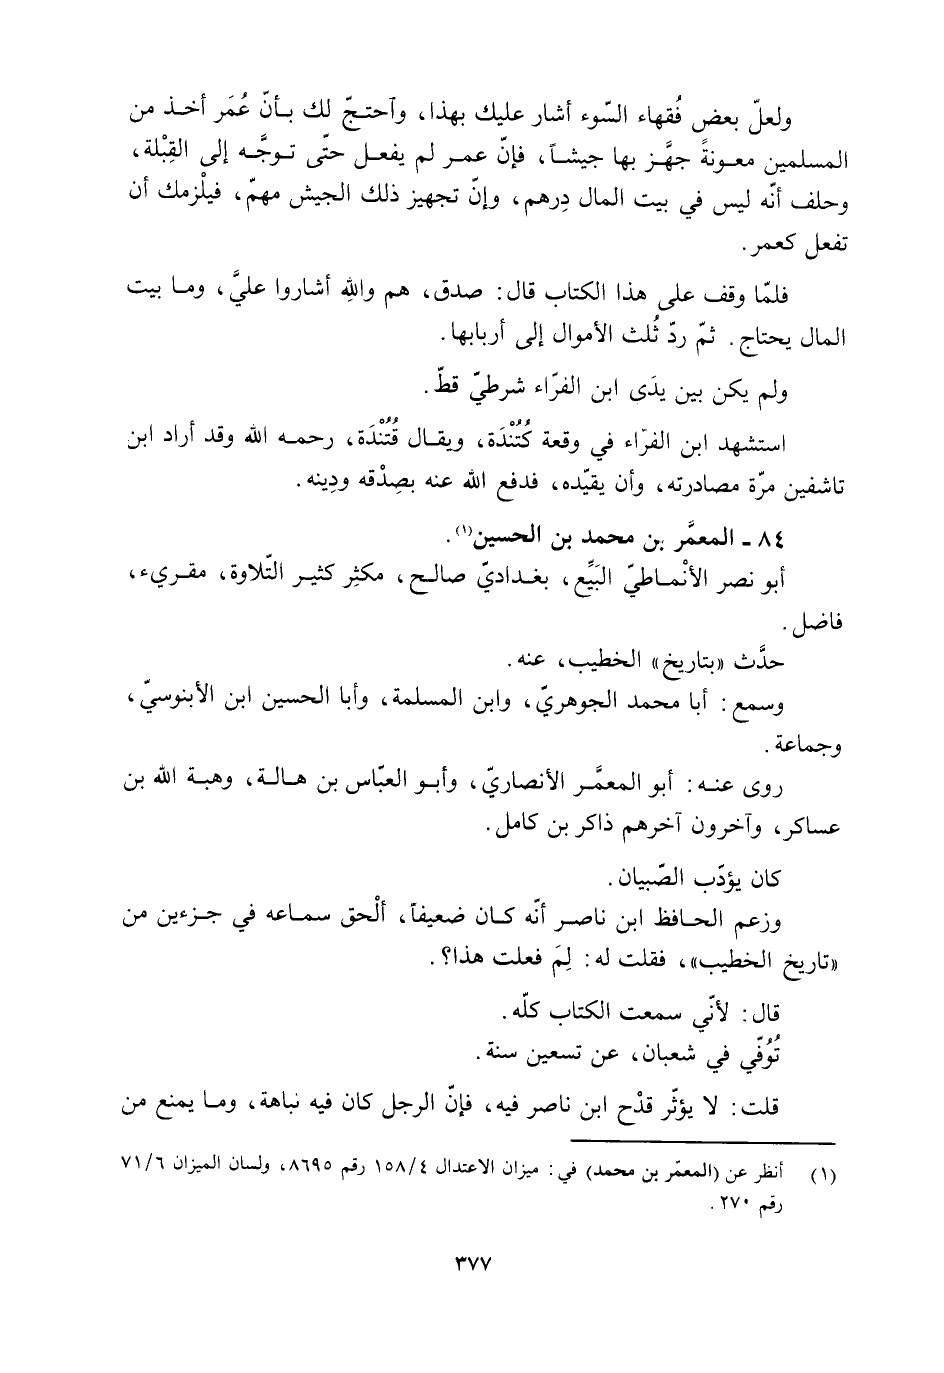 ولعلّ بعض فُقهاء السّوء أشار عليك بهذا، وآحتجّ لك بأنّ عُمَر أخذ من
المسلمين معونةً جهَّز بها جيشاً، فإنّ عمر لم يفعل حتّى توجَّه إلى القِبْلة،
وحلف أنّه ليس في بيت المال دِرهم، وإنّ تجهيز ذلك الجيش مهمّ، فيلْزمك أن
تفعل كعمر.
فلمّا وقف على هذا الكتاب قال: صدق، هم واللهِ أشاروا عليَّ، وما بيت
المال يحتاج. ثمّ ردّ ثُلث الأموال إلى أربابها.
ولم يكن بين يدَى ابن الفرّاء شرطيّ قطّ.
استشهد ابن الفرّاء في وقعة كُتُنْدَة، ويقال قُتُنْدَة، رحمه الله وقد أراد ابن
تاشفين مرّة مصادرته، وأن يقيّده، فدفع الله عنه بصِدْقه ودِينه.
٨٤ ـ المعمَّر بن محمد بن الحسين(١).
أبو نصر الأنْماطيّ البَيِّع، بغداديّ صالح، مكثِر كثير التّلاوة، مقريء،
فاضل.
حدَّث «بتاريخ» الخطيب، عنه.
وسمع: أبا محمد الجوهريّ، وابن المسلمة، وأبا الحسين ابن الأبنوسيّ،
وجماعة.
روى عنه: أبو المعمَّر الأنصاريّ، وأبو العبّاس بن هالة، وهبة الله بن
عساكر، وآخرون آخرهم ذاكر بن كامل.
كان يؤدّب الصّبيان.
وزعم الحافظ ابن ناصر أنّه كان ضعيفاً، ألْحق سماعه في جزءين من
«تاريخ الخطيب»، فقلت له: لِمَ فعلت هذا؟.
قال: لأنّي سمعت الكتاب كلّه.
تُوُفّي في شعبان، عن تسعين سنة.
قلت: لا يؤثّر قدْح ابن ناصر فيه، فإنّ الرجل كان فيه نباهة، وما يمنع من
(١) أنظر عن (المعمّر بن محمد) في: ميزان الاعتدال ١٥٨/٤ رقم ٨٦٩٥، ولسان الميزان ٧١/٦
رقم ٢٧٠.
٣٧٧